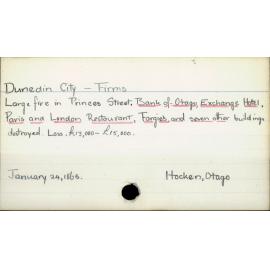 Dunedin City - Firms
Large fire in Princes Street. Bank of Otago, Exchange Hotel,
Paris and London Restaurant, Fargies, and seven other buildings
destroyed. Loss, £13,000 - £15,000.
January 24, 1865.
Hocken, Otago